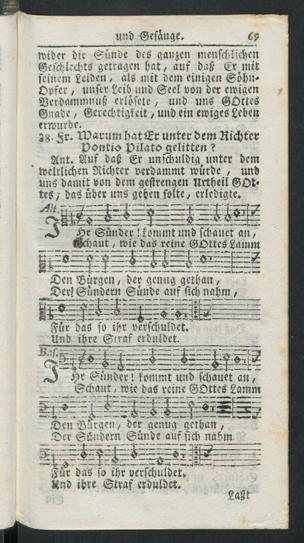 und Gesänge. 69
wider die Sünde des ganzen menschlichen
Geschlechts getragen hat, auf daß Er mit
seinem Leiden, als mit dem einigen Söhn-
Opfer, unser Leib und Seel von der ewigen
Verdammnuß erlösete, und uns GOttes
Gnade, Gerechtigkeit, und ein ewiges Leben
erwurbe.
38. Fr. Warum hat Er unter dem Richter
Pontio Pilato gelitten?
Ant. Auf daß Er unschuldig unter dem
weltlichen Richter verdammt würde, und
uns damit von dem gestrengen Urtheil GOt-
tes, das über uns gehen solte, erledigte.
Alt.
Ihr Sünder! kommt und schauet an,
Schaut, wie das reine GOttes Lamm
Den Bürgen, der genug gethan,
Der Sündern Sünde auf sich nahm,
Für das so ihr verschuldet.
Und ihre Straf erduldet.
Bas.
Ihr Sünder! kommt und schauet an,
Schaut, wie das reine GOttes Lamm
Den Bürgen, der genug gethan,
Der Sündern Sünde auf sich nahm
Für das so ihr verschuldet.
Und ihre Straf erduldet.
Laßt